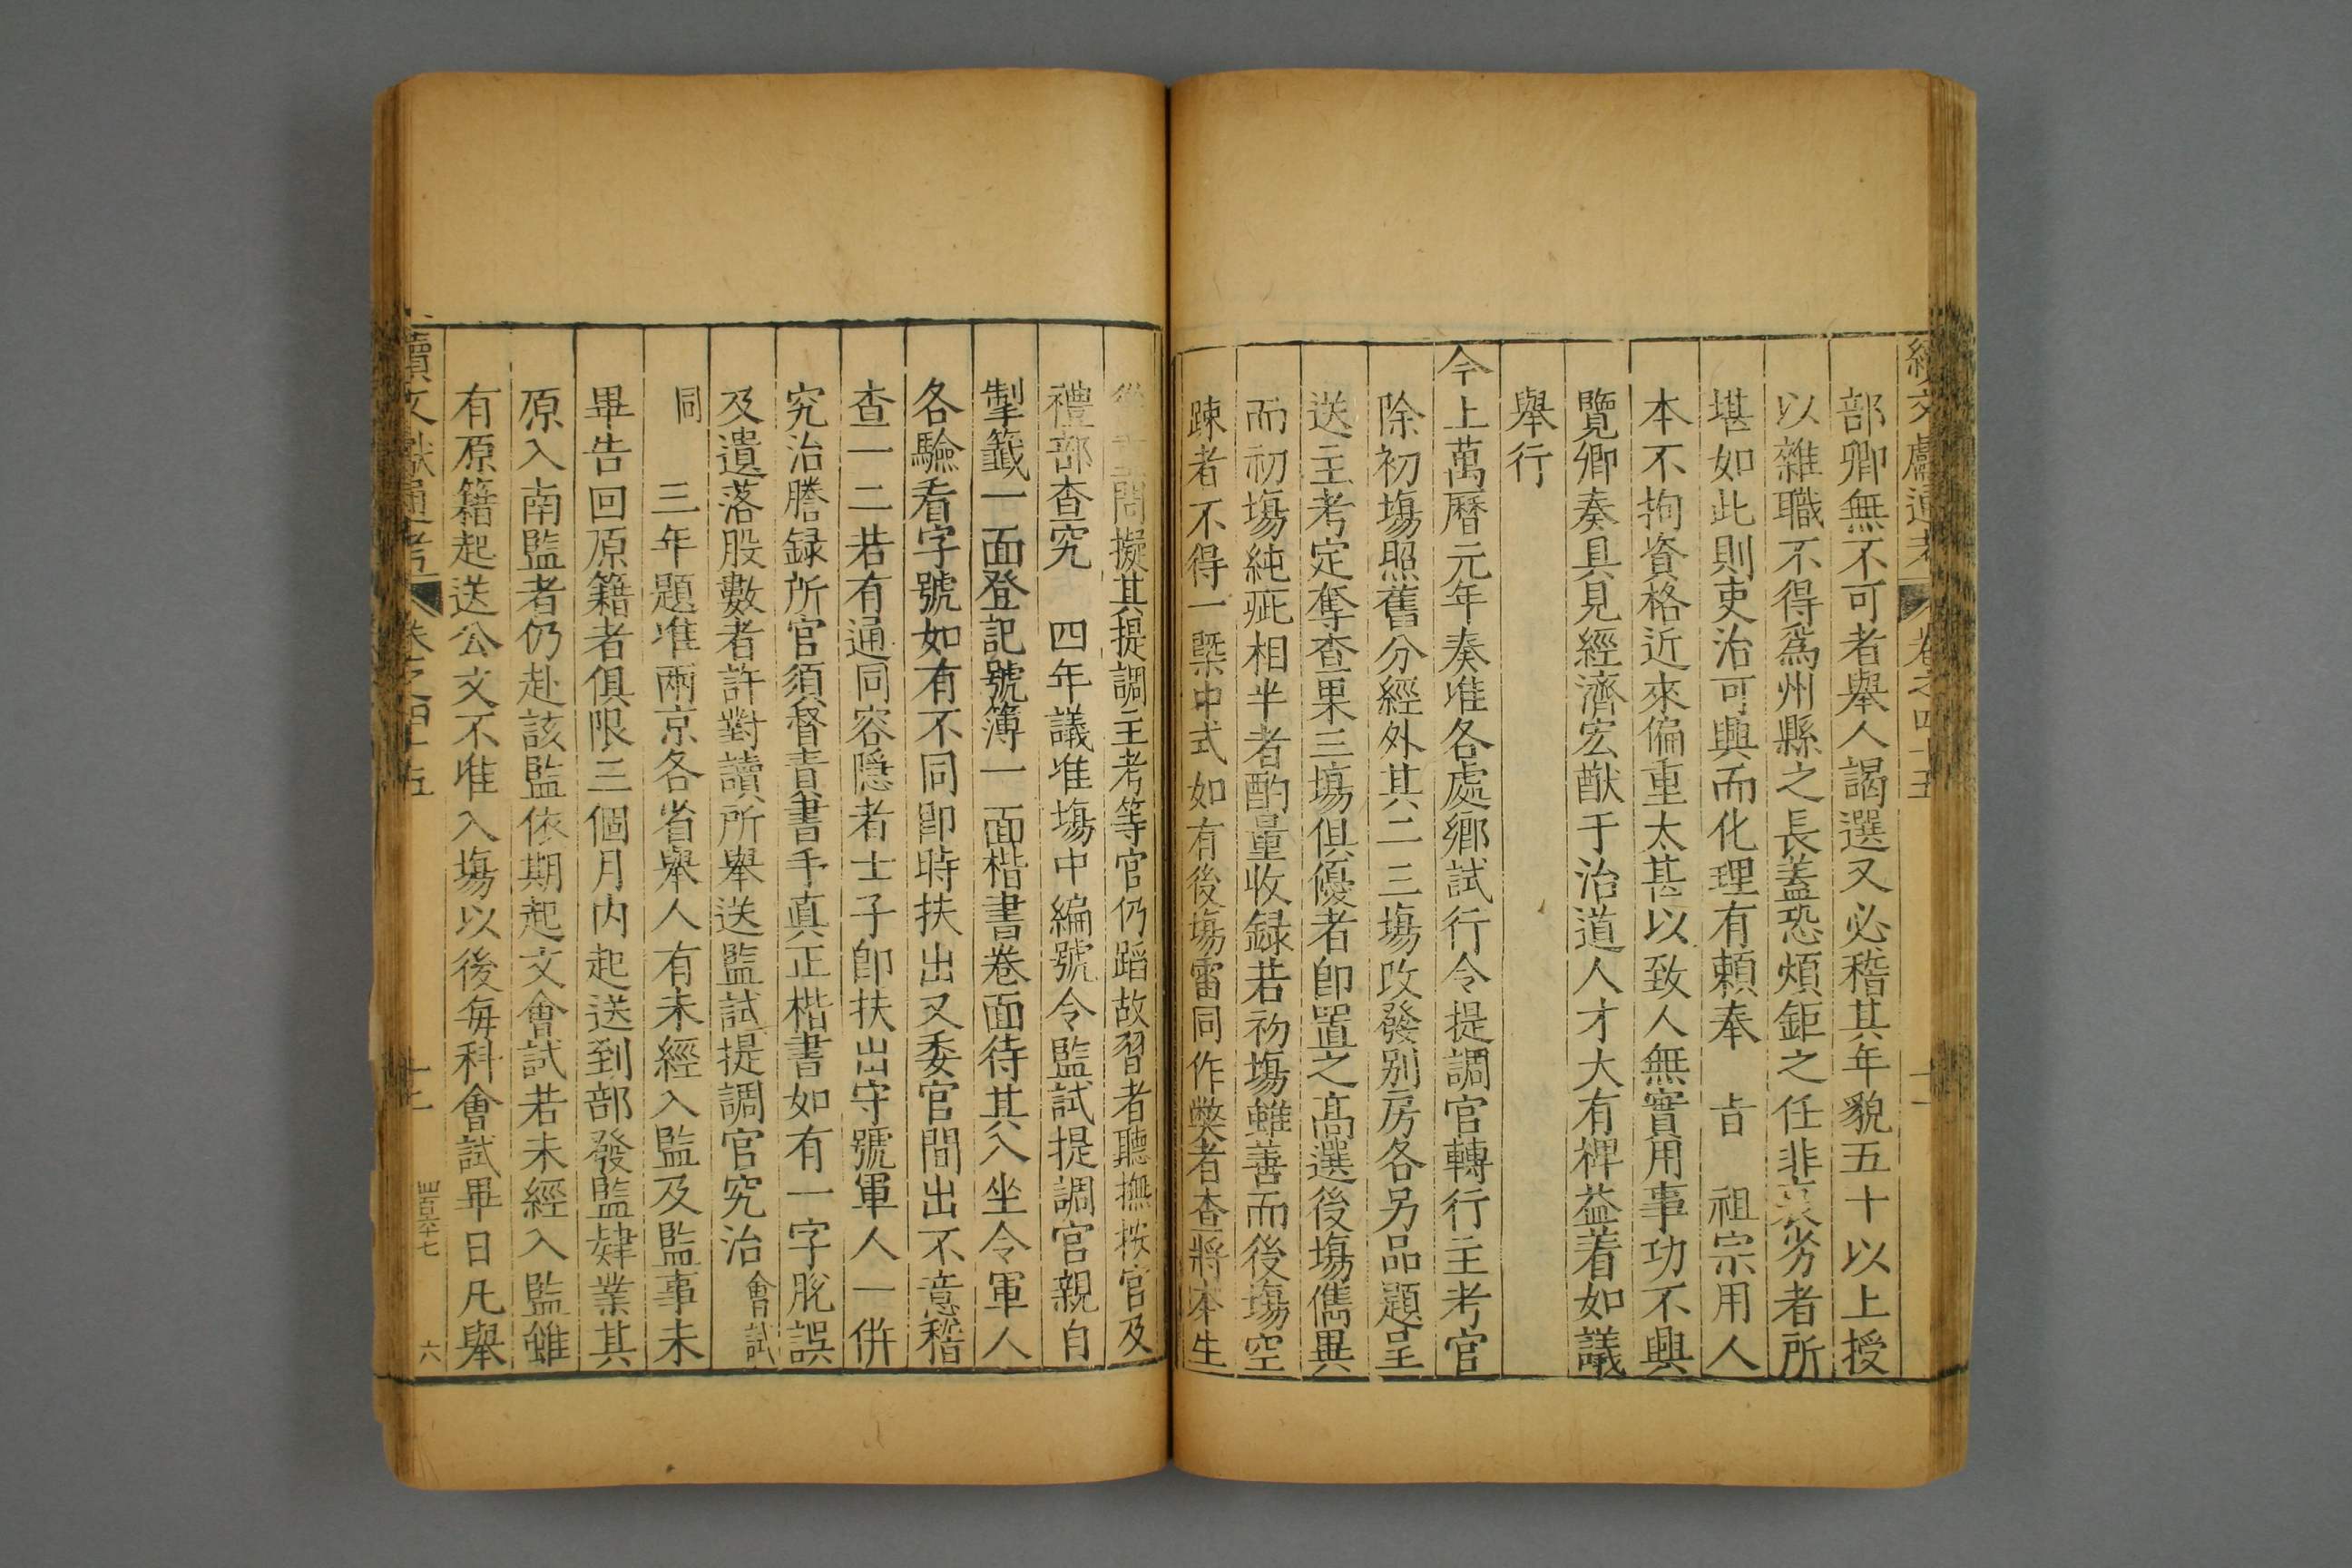 續文獻通考 卷之四十五 十一
部卿無不可者舉人謁選又必稽其年貌五十以上授
以雜職不得爲州縣之長蓋恐煩鉅之任非衰劣者所
堪如此則吏治可興而化理有頼奉 旨 祖宗用人
本不拘資格近來偏重太甚以致人無實用事功不興
覽卿奏具見經濟宏猷于治道人才大有裨益着如議
舉行
今上萬曆元年奏准各處鄉試行令提調官轉行主考官
除初場照舊分經外其二三場改發别房各另品題呈
送主考定奪查果三場俱優者卽置之高選後場儁異
而初場純疵相半者酌量收録若初場雖善而後場空
踈者不得一槩中式如有後場雷同作弊者查將本生
擬其提調主考等官仍蹈故習者聽撫按官及
禮部查究 四年議准場中編號令監試提調官親自
掣籤一面登記號簿一面楷書卷面待其入坐令軍人
各驗看字號如有不同卽時扶出又委官間出不意稽
查一二若有通同容隱者士子卽扶出守號軍人一併
究治謄録所官須督責書手真正楷書如有一字脫誤
及遺落股數者許對讀所舉送監試提調官究治 會試
同 三年題准兩京各省舉人有未經入監及監事未
畢告回原籍者俱限三個月内起送到部發監肄業其
原入南監者仍赴該監依期起文會試若未經入監雖
有原籍起送公文不准入場以後每科會試畢日凡舉
續文獻通考 卷之四十五 十二 四百六十七 六